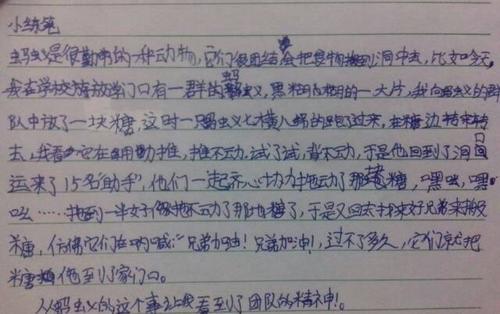 小练笔
蚂蚁是很勤劳的一种动物,它们很团结会把食物搬到洞中去,比如今天,
我在学校放学门口有一群的蚂蚁,黑粗的一大片,我向蚂蚁的群
队中放了一块糖,这时一只蚂蚁七横八的爬过来,在糖边转来转
去,我看它在用力推,推不动,试了试,背不动,于是他回到了洞口
运来了15名“助手”,他们一起齐心协力拖动了那糖,“嘿呦,嘿
呦……拖到一半好像拖不动了那块糖了,于是又回去好兄弟来搬
糖,仿佛它们在呐喊:“兄弟加油!兄弟加油!,过不了多久,它们就把
糖拖到了家门口。
从蚂蚁的这个事让我看到了团队的精神!。